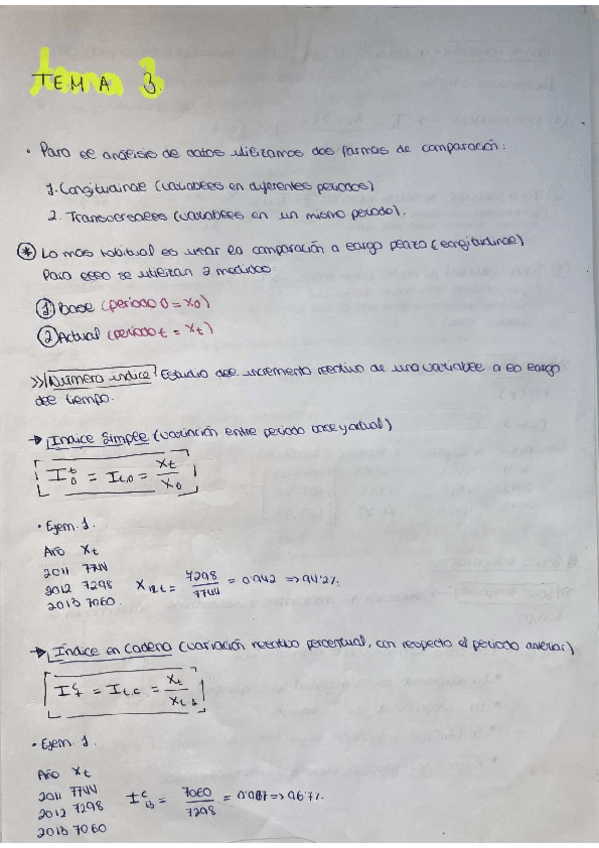 TEMA 3.
• Para el análisis de datos utilizamos dos formas de comparación:
1. Longitudinal (variables en diferentes periodos)
2. Transversales (variables en un mismo periodo).
* Lo mas habitual es usar la comparación a largo plazo (longitudinal)
Para esso se utilizan 2 medidas:
① Base (periodo 0 = x₀)
② Actual (periodo t = xₜ)
>> Número indice: Estudio del incremento relativo de una variable a lo largo
del tiempo.
→ Indice Simple (variación entre periodo base y actual)
I₀ᵗ = Iₜ,₀ = xₜ / x₀
• Ejem. 1.
Año xₜ
2011 7744
2012 7298 7298 / 7744 = 0'942 => 94'2%.
2013 7060.
→ Índice en Cadena (variación relativa percentual, con respecto al periodo anterior)
= Iₜ,c = xₜ / xₜ₋₁
• Ejem. 1.
Año xₜ
2011 7744
2012 7298 Iᶜ₁₃ = 7060 / 7298 = 0'967 => 96'7%
2013 7060